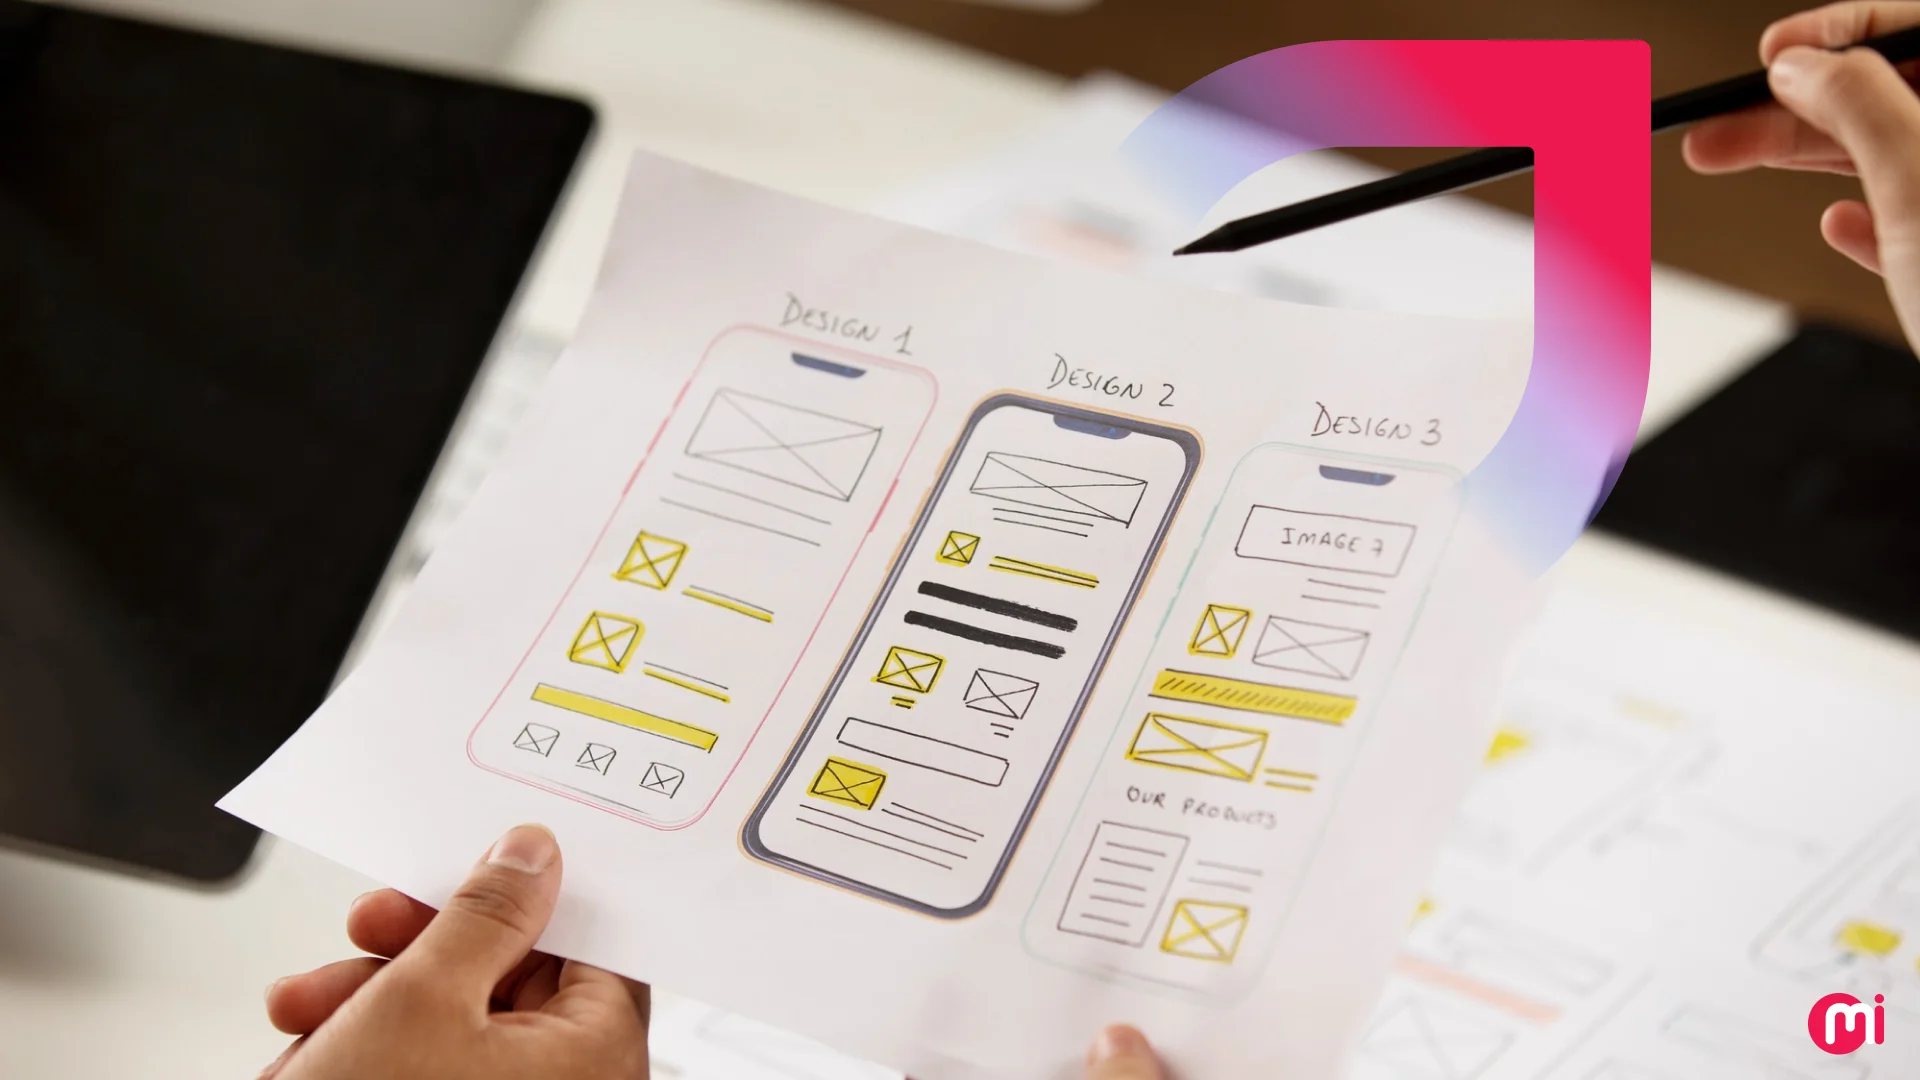 DESIGN 1
DESIGN 2
DESIGN 3
IMAGE 7
OUR PRODUCTS
mi